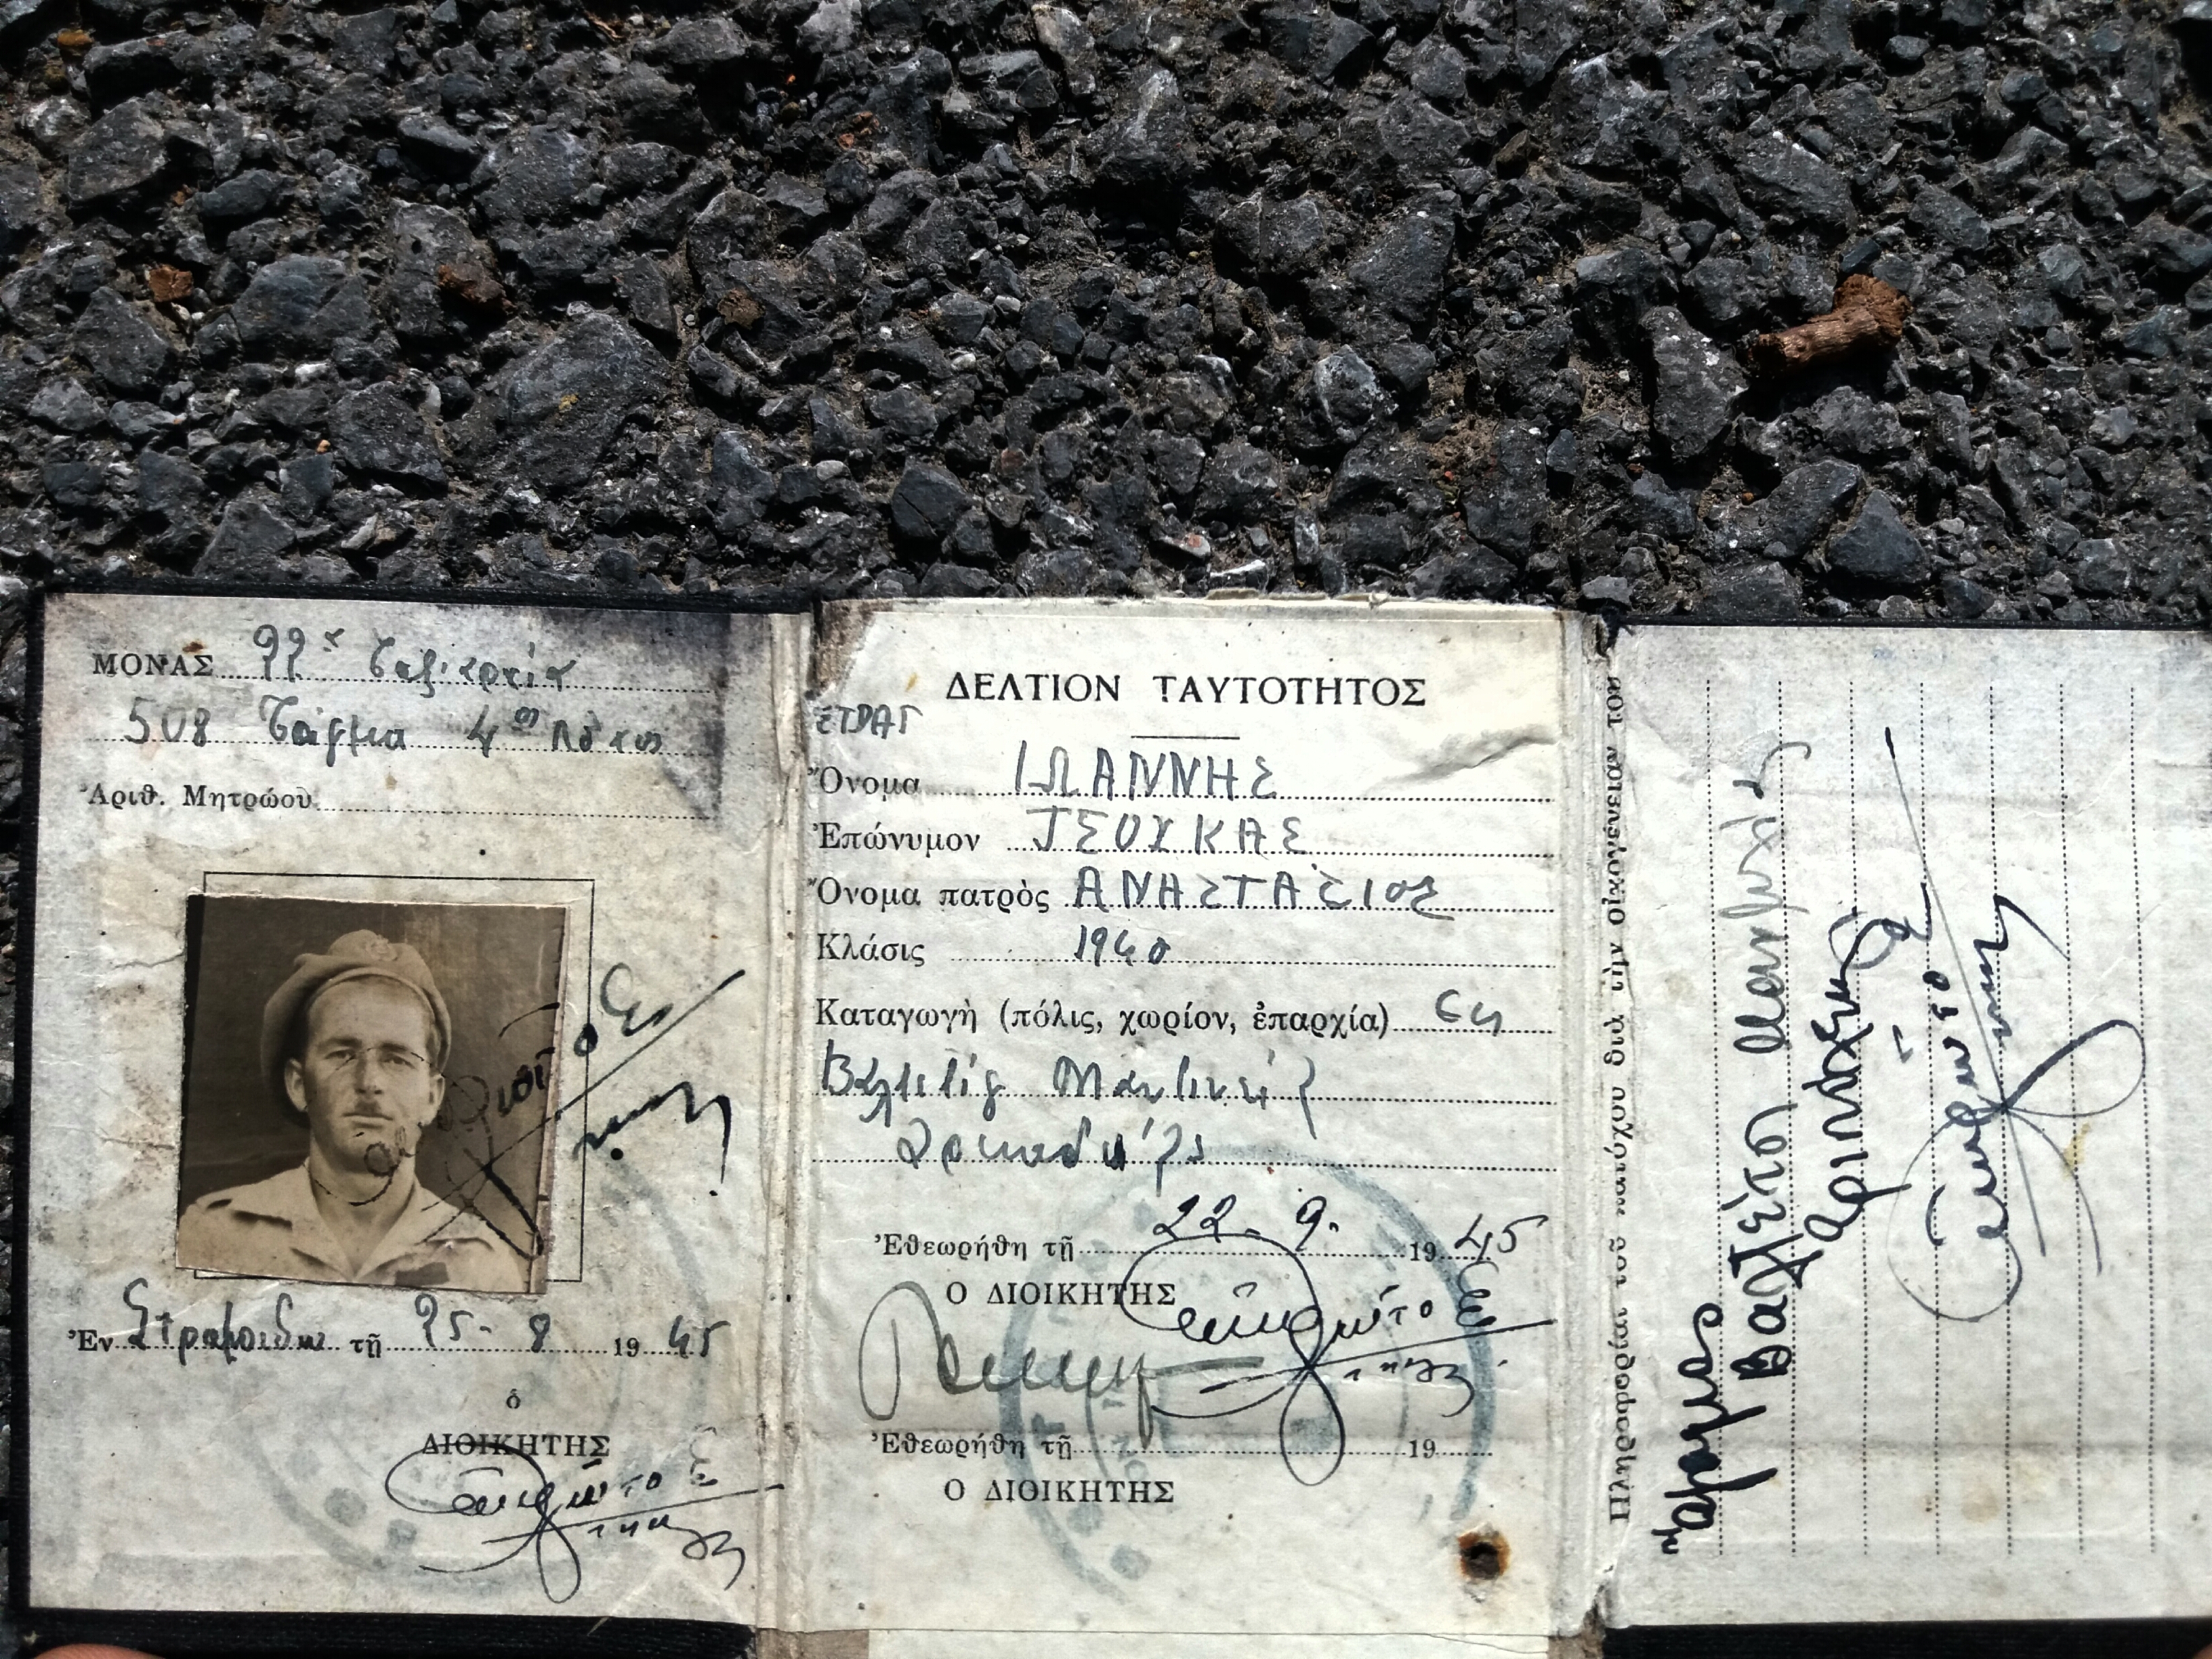 ΜΟΝΑΣ 99 Ταξιαρχία
508 Τάγμα 4ος Λόχος
Ἀριθ. Μητρώου
Ἐν τῇ 25-8 1945
ὁ
ΔΙΟΙΚΗΤΗΣ
ΔΕΛΤΙΟΝ ΤΑΥΤΟΤΗΤΟΣ
ΣΤΡΑΤ
Ὄνομα ΙΩΑΝΝΗΣ
Ἐπώνυμον ΤΣΟΥΚΑΣ
Ὄνομα πατρὸς ΑΝΑΣΤΑΣΙΟΣ
Κλάσις 1940
Καταγωγὴ (πόλις, χωρίον, ἐπαρχία) ἐκ
Βαλτέτσι Μαντινείας
Ἀρκαδίας
Ἐθεωρήθη τῇ 22-9- 1945
Ο ΔΙΟΙΚΗΤΗΣ
Ἐθεωρήθη τῇ 19
Ο ΔΙΟΙΚΗΤΗΣ
Πληροφορίαι τοῦ κατόχου διὰ τὴν οἰκογένειάν του
Βαλτέτσι Μαντινείας